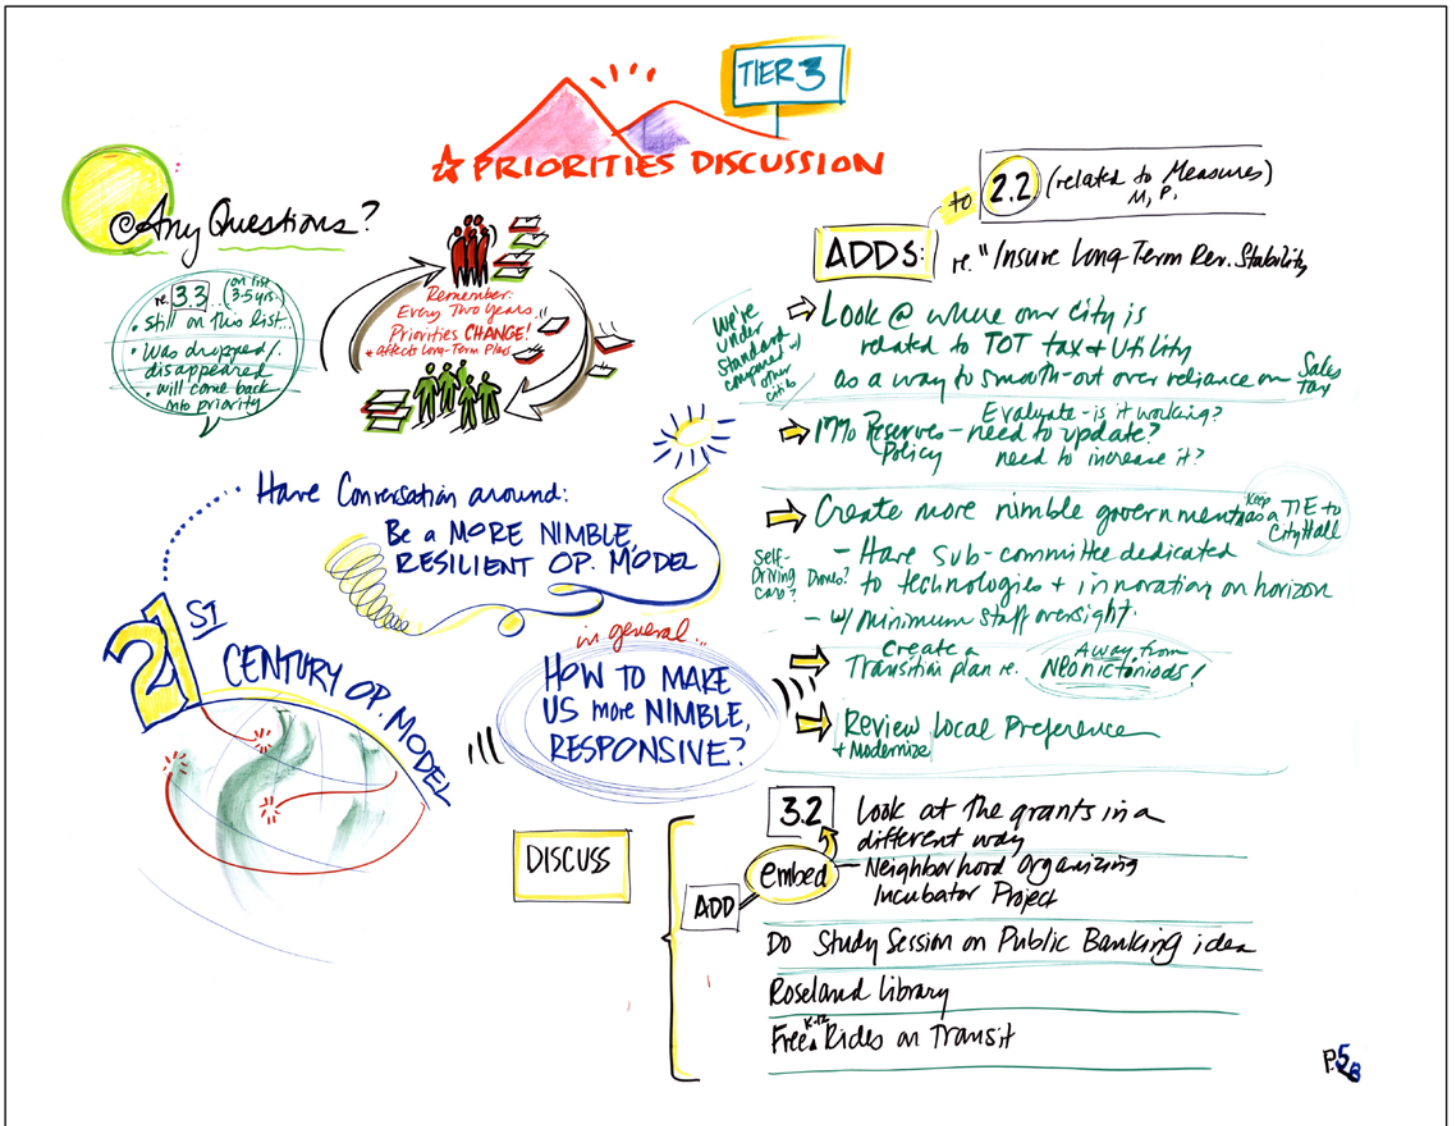 TIER 3
☆ PRIORITIES DISCUSSION
@ Any Questions?
re. 3.3... (on list 3-5 yrs.)
• Still on this list...
• Was dropped/.
disappeared
• will come back
into priority
Remember:
Every Two Years,
Priorities CHANGE!
* affects Long-Term Plans
Have Conversation around:
Be a MORE NIMBLE,
RESILIENT OP. MODEL
21ST
CENTURY OP. MODEL
in general...
HOW TO MAKE
US more NIMBLE,
RESPONSIVE?
to 2.2. (related to Measures)
M, P,
ADDS: re. "Insure Long-Term Rev. Stability
We're
under
Standard
compared w/
other
cities
Look @ where our city is
related to TOT tax & Utility
as a way to smooth-out over reliance on Sales
tax
Evaluate - is it working?
17% Reserves - need to update?
Policy need to increase it?
Create more nimble government
Keep as a TIE to
City Hall
- Have sub-committee dedicated
Self-
Driving
cars?
Drones?
to technologies + innovation on horizon
- w/ minimum staff oversight.
Create a
Transition plan re.
Away from
Neonictoniods!
Review Local Preference
+ Modernize
DISCUSS
3.2 Look at the grants in a
different way
ADD embed - Neighborhood Organizing
Incubator Project
Do Study Session on Public Banking idea
Roseland Library
K-12
Free Rides on Transit
P.5B